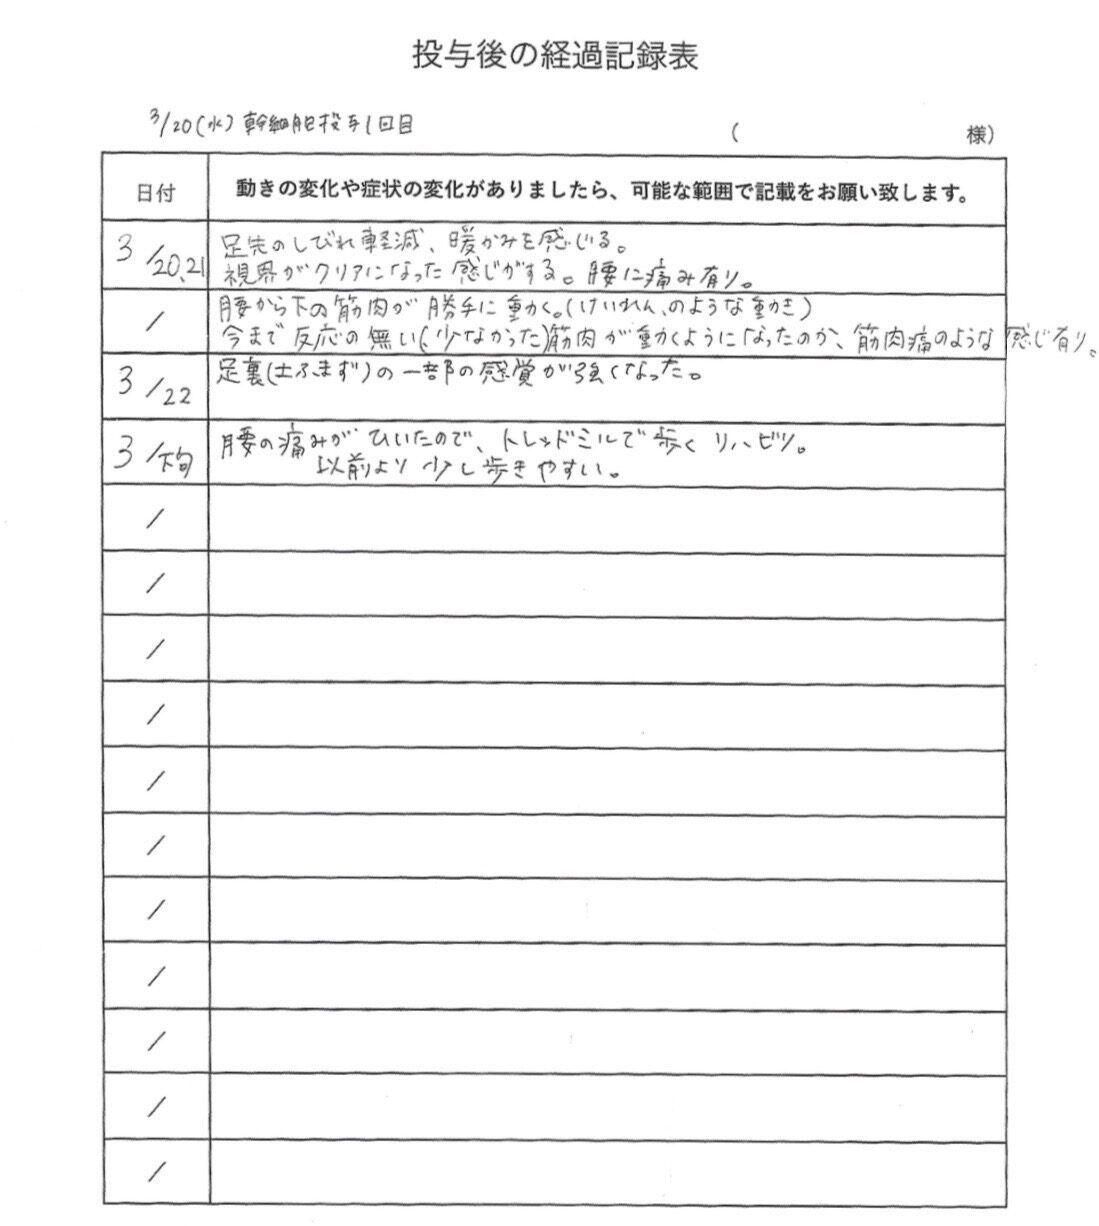 投与後の経過記録表
3/20(水) 幹細胞投与1回目
( 様)
日付
動きの変化や症状の変化がありましたら、可能な範囲で記載をお願い致します。
3/20、21
足先のしびれ軽減、暖かみを感じる。
視界がクリアになった感じがする。腰に痛み有り。
/
腰から下の筋肉が勝手に動く。(けいれんのような動き)
今まで反応の無い(少なかった)筋肉が動くようになったのか、筋肉痛のような感じ有り。
3/22
足裏(土ふまず)の一部の感覚が強くなった。
3/下旬
腰の痛みがひいたので、トレッドミルで歩くリハビリ。
以前より少し歩きやすい。
/
/
/
/
/
/
/
/
/
/
/